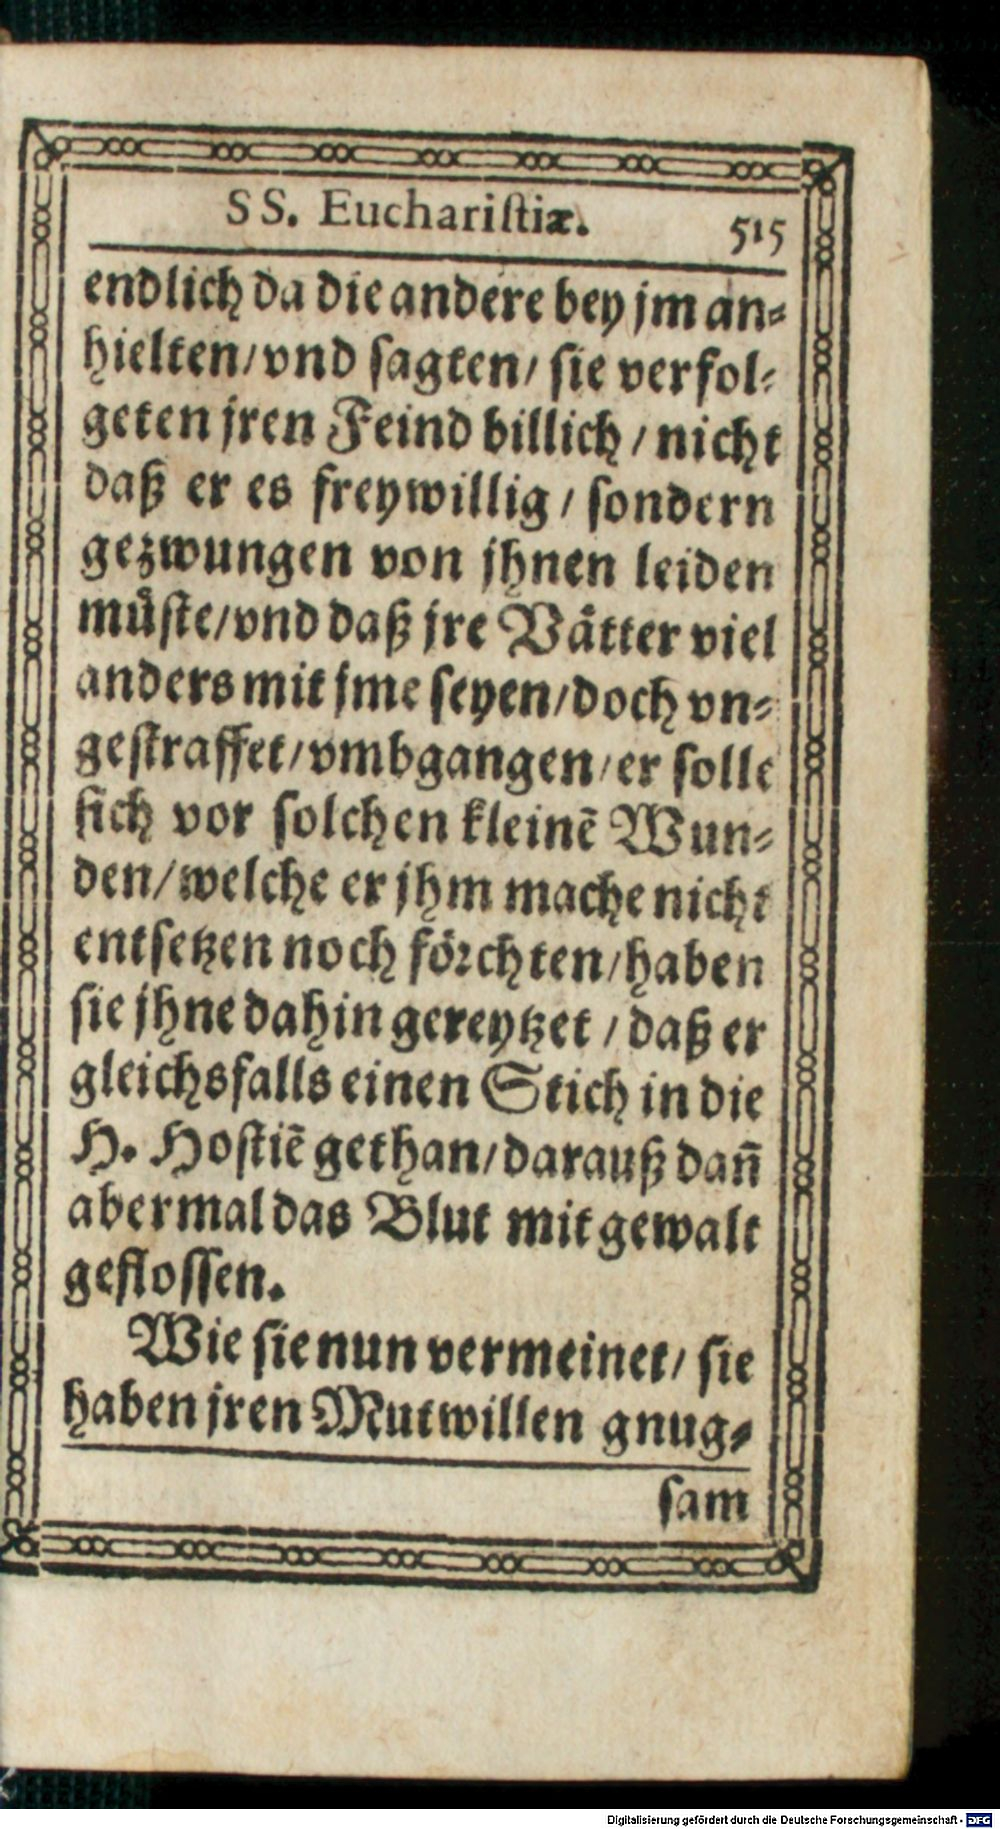 SS. Euchariſtiæ. 515
endlich da die andere bey jm an⸗
hielten/vnd ſagten/ ſie verfol⸗
geten jren Feind billich / nicht
daß er es freywillig / ſondern
gezwungen von jhnen leiden
muͤſte/vnd daß jre Vaͤtter viel
anders mit jme ſeyen/doch vn⸗
geſtraffet/vmbgangen/er ſolle
ſich vor ſolchen kleinẽ Wun⸗
den/welche er jhm mache nicht
entſetzen noch foͤꝛchten/haben
ſie jhne dahin gereytzet / daß er
gleichsfalls einen Stich in die
H. Hoſtiẽ gethan/darauß dañ
abermal das Blut mit gewalt
gefloſſen.
Wie ſie nun vermeinet/ ſie
haben jren Mutwillen gnug⸗
ſam
Digitalisierung gefördert durch die Deutsche Forschungsgemeinschaft - DFG